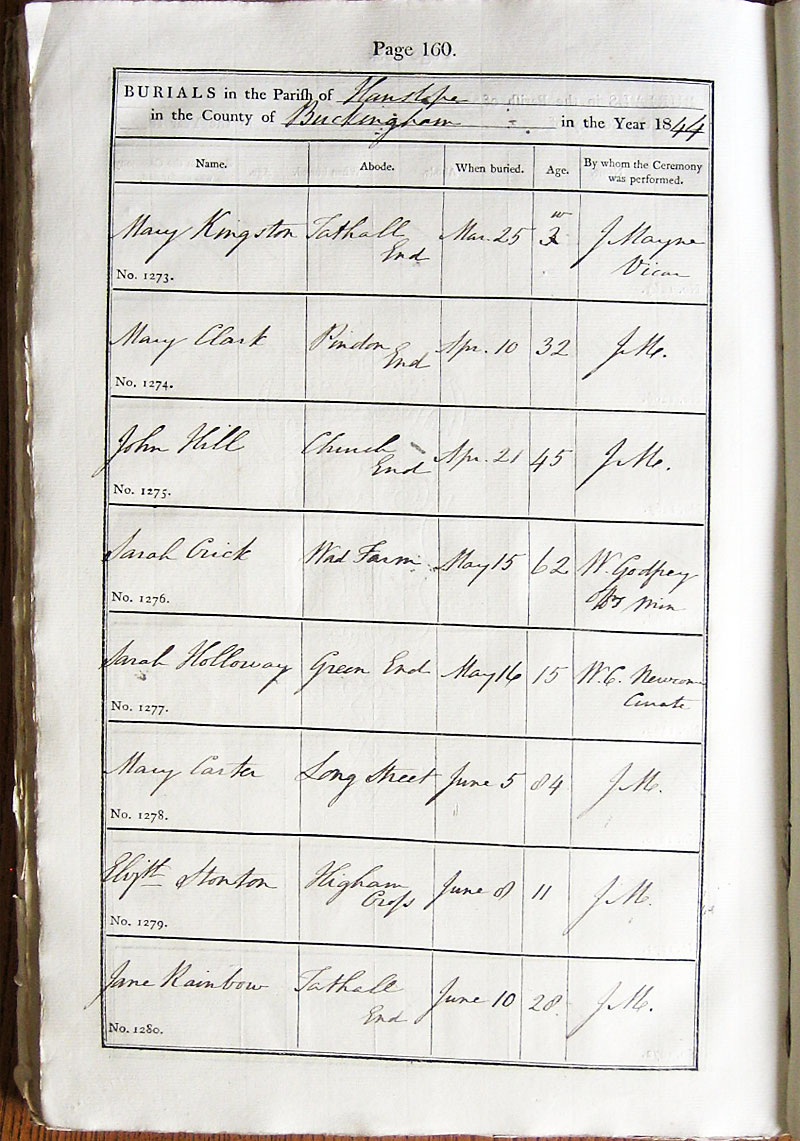 Page 160.
BURIALS in the Parish of Hanslope
in the County of Buckingham in the Year 1844
Name. Abode. When buried. Age. By whom the Ceremony was performed.
Mary Kingston Tathall End Mar. 25 3 w J Mayne Vicar
No. 1273.
Mary Clark Pindon End Apr. 10 32 J M.
No. 1274.
John Hill Church End Apr. 21 45 J M.
No. 1275.
Sarah Crick Wad Farm May 15 62 W. Godfrey Min
No. 1276.
Sarah Holloway Green End May 16 15 W. C. Newcome Curate
No. 1277.
Mary Carter Long Street June 5 84 J M.
No. 1278.
Elizth Stonton Higham Cross June 8 11 J M.
No. 1279.
Jane Rainbow Tathall End June 10 28 J M.
No. 1280.